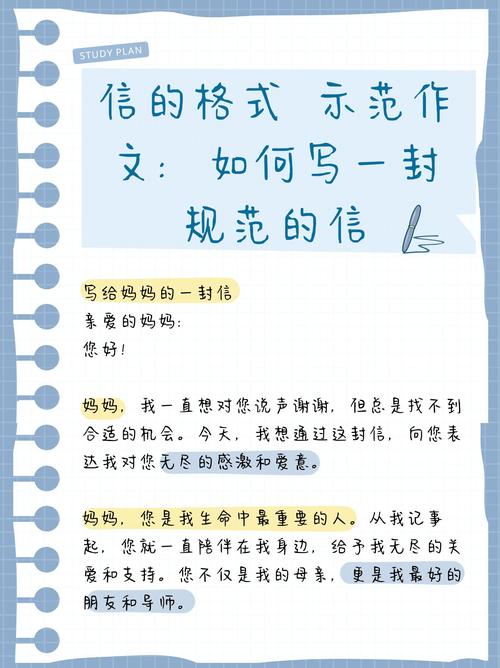 STUDY PLAN
信的格式 示范作
文： 如何写一封
规范的信
写给妈妈的一封信
亲爱的妈妈：
您好！
妈妈，我一直想对您说声谢谢，但总是找不到
合适的机会。今天，我想通过这封信，向您表
达我对您无尽的感激和爱意。
妈妈，您是我生命中最重要的人。从我记事
起，您就一直陪伴在我身边，给予我无尽的关
爱和支持。您不仅是我的母亲，更是我最好的
朋友和导师。